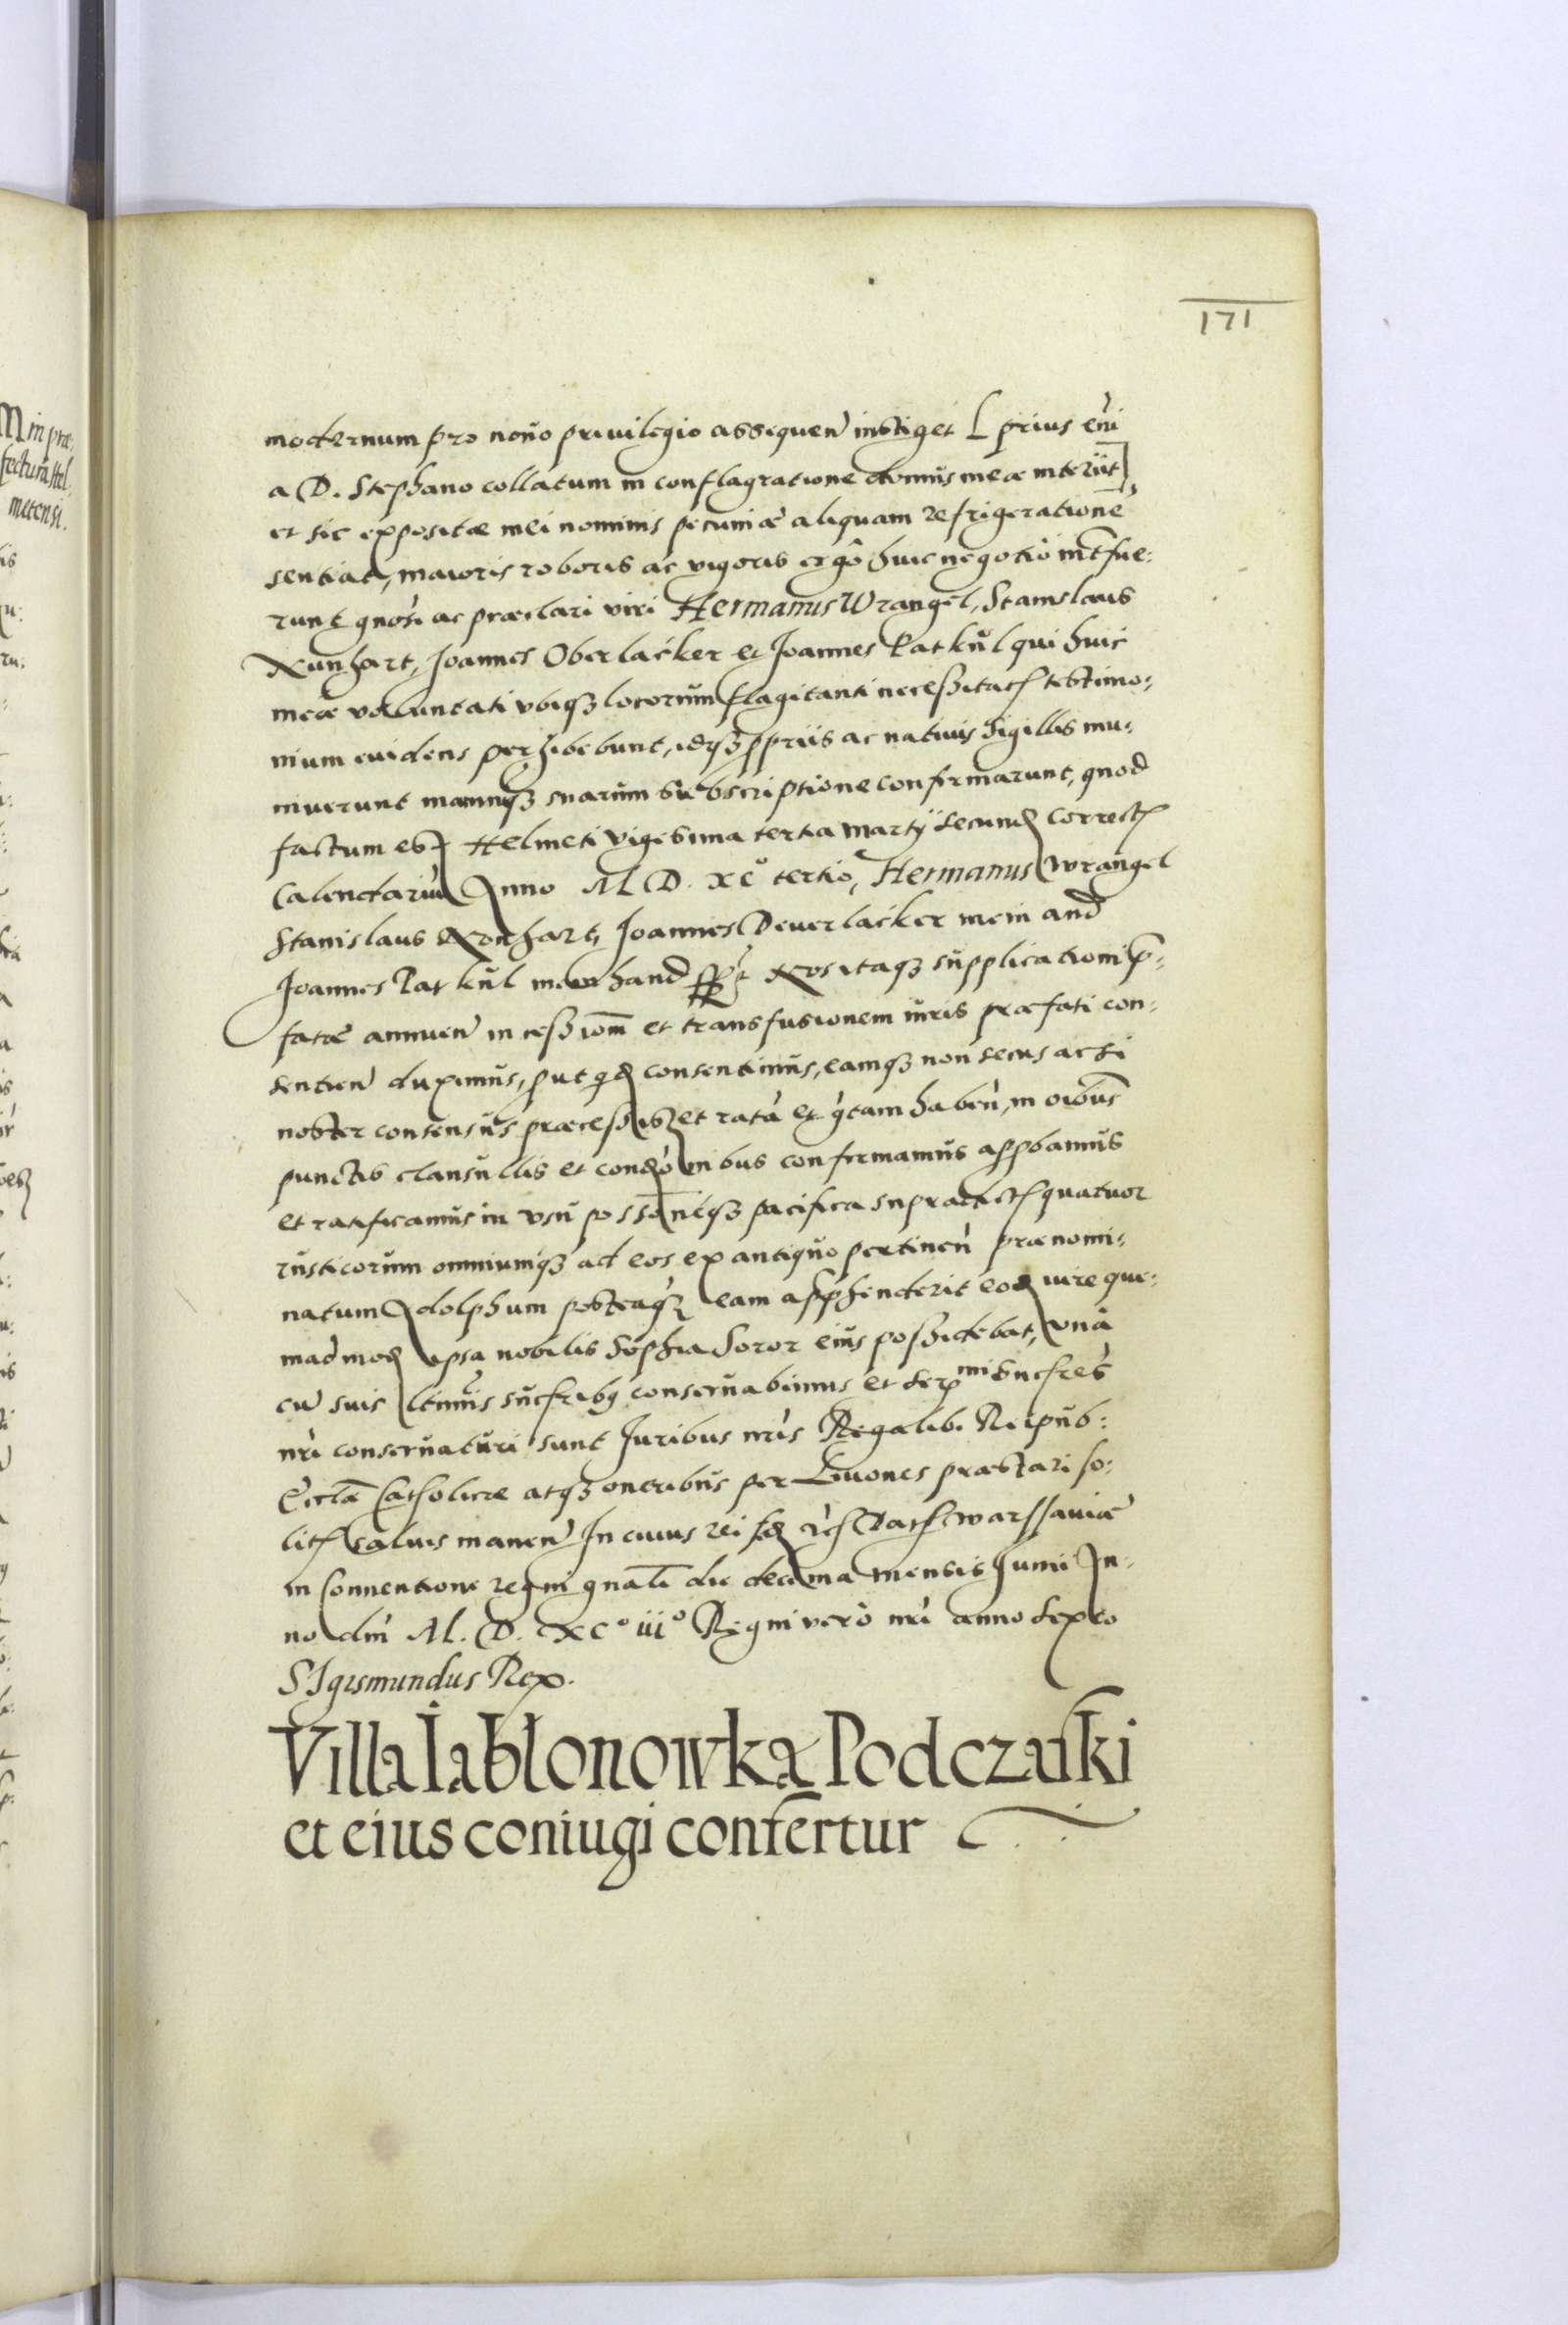 171
modernum pro novo privilegio assequen̄ instiget [prius em̄
a D. Stephano collatum in conflagratione domus meæ interiit]
et sic expositæ mei nominis pecuniæ aliquam refrigerationē
sentiat, maioris roboris ac vigoris ergò huic negotio int̄fue:
runt gnōsi ac præclari viri Hermanus Wrangel, Stanislaus
Xunhart, Joannes Oberlacker et Joannes Patkul qui huic
meæ voluntati ubiqꝫ locorum flagitanti necessitati testimo:
nium evidens perhibebunt, idqꝫ ꝓpriis ac nativis Sigillis mu:
niverunt manuqꝫ suarum subscriptione confirmarunt, quod
factum est Helmeti vigesima tertia Martij secund correct
Calendariū Anno M D. XC° tertio, Hermanus Wrangel
Stanislaus Xonhart, Joannes Deverlacker mein and
Joannes Patkul mein hand Nos itaqꝫ supplicationi p̄:
fatæ annuen̄ in cessiom̄ et transfusionem iuris præfati con:
sentien̄ duximus, put qd consentimus, eamqꝫ non secus ac si
noster consensus præcessisset ratā et gtam haben̄, in oībus
punctis clausullis et condōnibus confirmamus appbamus
et ratificamus in usu possōneqꝫ pacifica supradict quatuor
rusticorum omniumqꝫ ad eos ex antiquo pertinen̄ prænomi:
natum Adolphum posteaqꝫ eam apphenderit eod iure que:
madmod ipsa nobilis Sophia Soror eius possidebat, unà
cū suis ltimis sucfribꝫ conservabimus et Serᵐⁱ Sucfres
nr̄i conservaturi sunt Juribus nr̄is Regalib. Reipub:
Ecclæ Catholicæ atqꝫ oneribus per Livones præstari so:
lit salvis manen̄ In cuius rei fid Dat Warssaviæ
in Conventione regni gnali die decima mensis Junii An:
no dnī M. D. XC° iii° Regni verò nr̄i anno sexto
SIgismundus Rex.
Villa Iablonowka Podczaski
et eius coniugi confertur
M in præ:
fectura Hel
metensi.